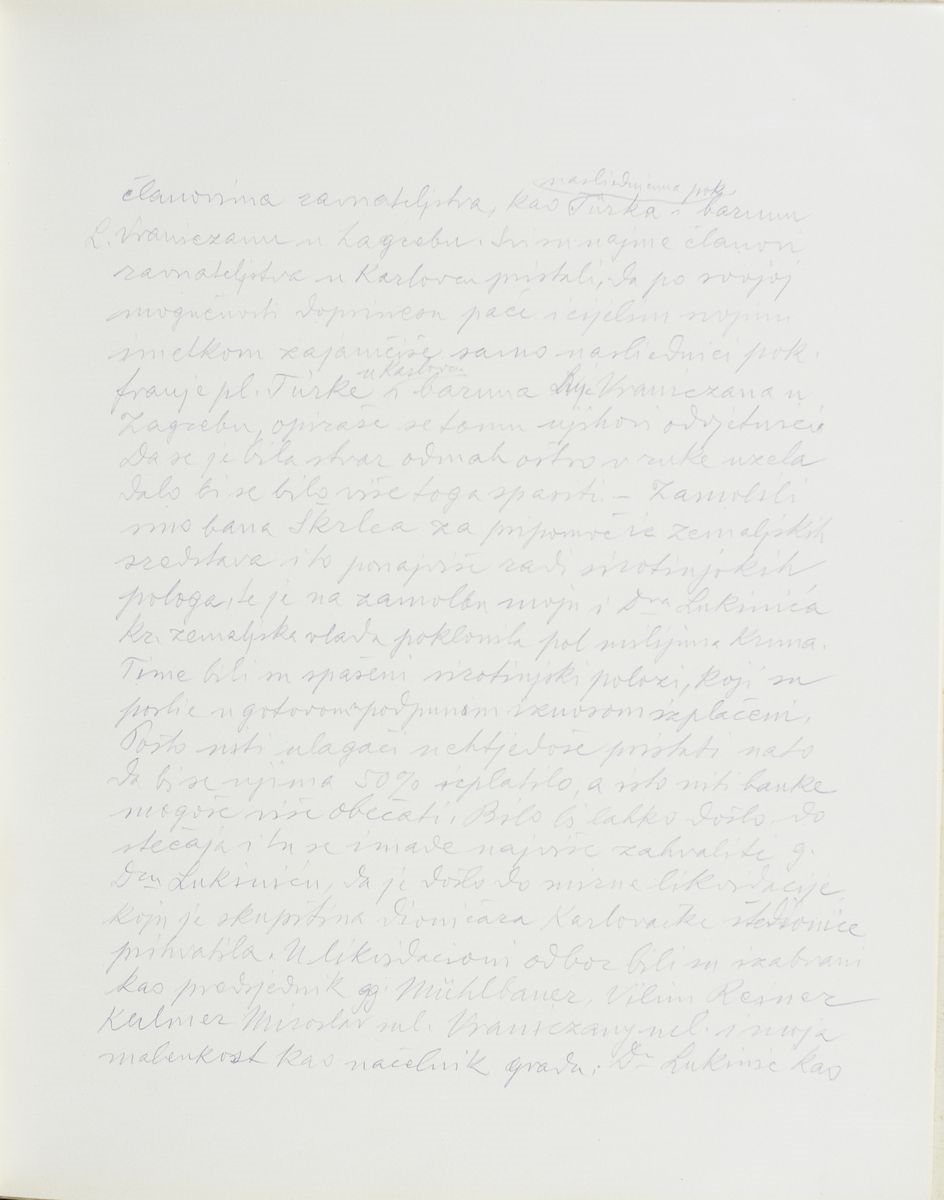 nasliednjcima pok.
članovima ravnateljstva, kao Türka i barunu
L. Vraniczanu u Zagrebu. Svi su najme članovi
ravnateljstva u Karlovcu pristali, da po svojoj
mogućnosti doprinesu pače i cijelim svojim
imetkom zajamčiše samo nasliednici pok.
u Karlovcu
franje pl. Türke i baruna Vraniczana u
Zagrebu, opiraše se tomu njihovi odvjetnici
Da se je bila stvar odmah oštro u ruke uzela
dalo bi se bilo više toga spasiti. – Zamolili
smo bana Škrlca za pripomoć iz zemaljskih
sredstava i to ponajviše radi sirotinjskih
pologa, te je na zamolbu moju i Dra Lukinića
Kr. zemaljska vlada poklonila pol milijuna Kruna.
Time bili su spašeni sirotinjski polozi, koji su
poslie u gotovom podpunom iznosom izplaćeni.
Pošto ulagači nehtjedoše pristati na to
da bi se njima 50% izplatilo, a isto niti banke
mogoše više obećati. Bilo bi lahko došlo do
stečaja i tu se imade najviše zahvaliti g.
Dru Lukiniću, da je došlo do mirne likvidacije
koju je skupština dioničara Karlovačke štedionice
prihvatila. U likvidacioni odbor bili su izabrani
kao predsjednik gg. Mühlbauer, Vilim Reiner
Kulmer Miroslav ml. Vraniczany ml. i moja
malenkost kao načelnik grada. Dr Lukinić kao